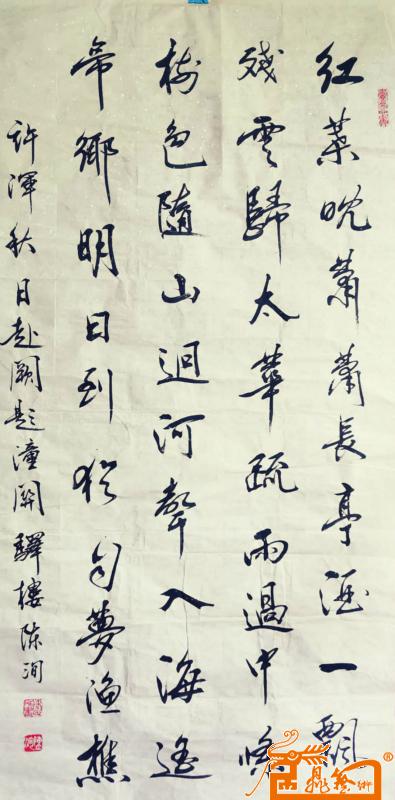 紅葉晚蕭蕭長亭酒一瓢
殘雲歸太華疏雨過中條
樹色隨山迥河聲入海遙
帝鄉明日到猶自夢漁樵
許渾秋日赴闕題潼關驛樓陈洵